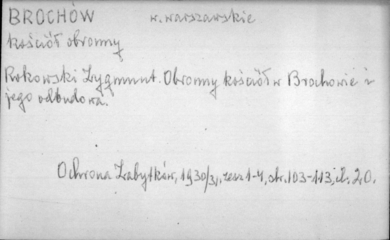 BROCHÓW w. warszawskie
kościół obronny
Rokowski Zygmunt. Obronny kościół w Brochowie i
jego odbudowa.
Ochrona Zabytków, 1930/31, zesz 1-4, str. 103-113, il. 20.